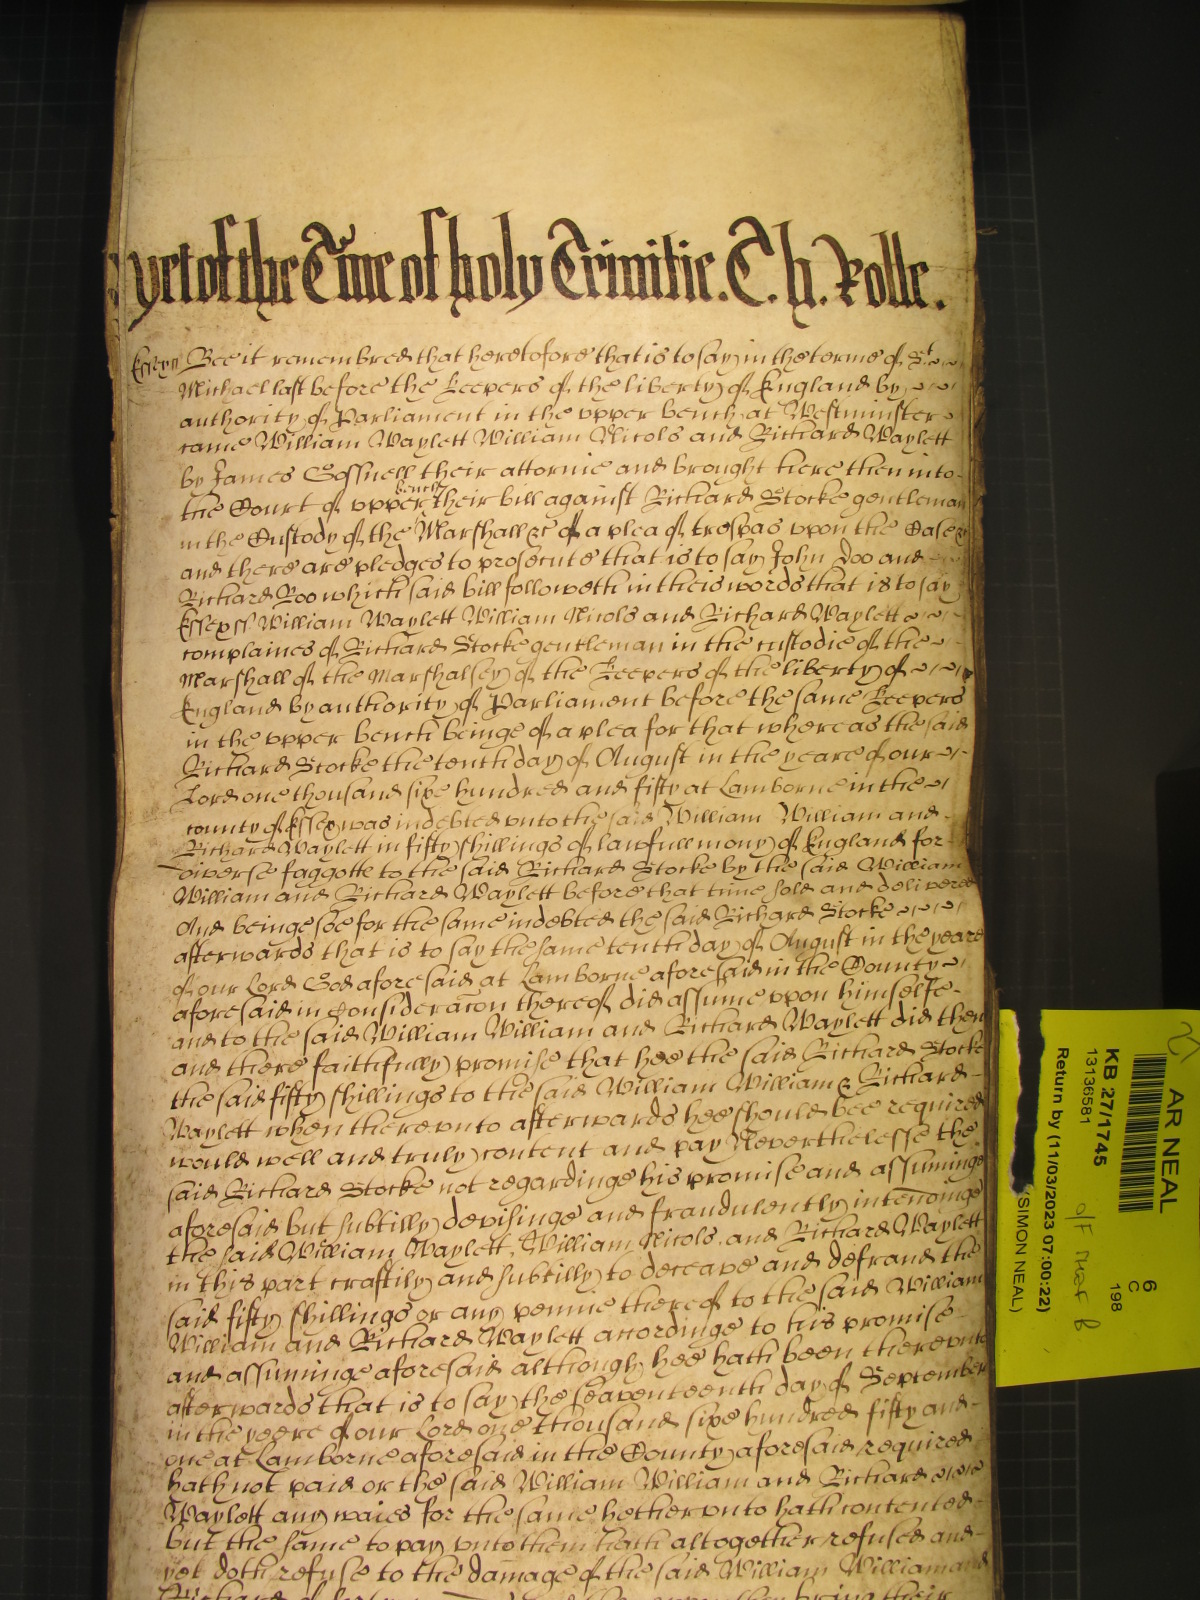 yet of the Time of holy Trinitie. C. h. Rolle.
Essex Bee it remembred that heretofore that is to say in the terme of St
Michael last before the Keepers of the liberty of England by
authority of Parliament in the upper bench at Westminster
came William Waylett William Nicols and Richard Waylett
by James Gosnell their attornie and brought here then into
the Court of upper bench their bill against Richard Stocke gentleman
in the Custody of the Marshall &c of a plea of trespas upon the Case
and there are pledges to prosecute that is to say John Doo and
Richard Roo which said bill followeth in theis words that is to say
Essex ss William Waylett William Nicols and Richard Waylett
complaines of Richard Stocke gentleman in the custodie of the
Marshall of the Marshalsey of the Keepers of the liberty of
England by authority of Parliament before the same Keepers
in the upper bench beinge of a plea for that whereas the said
Richard Stocke the tenth day of August in the yeare of our
Lord one thousand sixe hundred and fifty at Lamborne in the
county of Essex was indebted unto the said William William and
Richard Waylett in fifty shillings of lawfull mony of England for
diverse faggotte to the said Richard Stocke by the said William
William and Richard Waylett before that time sold and delivered
And beinge soe for the same indebted the said Richard Stocke
afterwards that is to say the same tenth day of August in the yeare
of our Lord God aforesaid at Lamborne aforesaid in the County
aforesaid in consideracon thereof did assume upon himselfe
and to the said William William and Richard Waylett did then
and there faithfully promise that hee the said Richard Stocke
the said fifty shillings to the said William William & Richard
Waylett when thereunto afterwards hee should bee required
would well and truly content and pay Neverthelesse the
said Richard Stocke not regardinge his promise and assuminge
aforesaid but subtilly devisinge and fraudulently intendinge
the said William Waylett, William Nicols, and Richard Waylett
in this part craftily and subtilly to deceave and defraud the
said fifty shillings or any pennie thereof to the said William
William and Richard Waylett accordinge to his promise
and assuminge aforesaid although hee hath been thereunto
afterwards that is to say the seaventeenth day of September
in the yeere of our Lord one thousand sixe hundred fifty and
one at Lamborne aforesaid in the County aforesaid required
hath not paid or the said William William and Richard
Waylett any waies for the same hetherunto hath contented
but the same to pay unto them hath altogether refused and
yet doth refuse to the damage of the said William William and
AR NEAL
6
C
198
KB 27/1745
13136581
Return by (11/03/2023 07:00:22)
(SIMON NEAL)